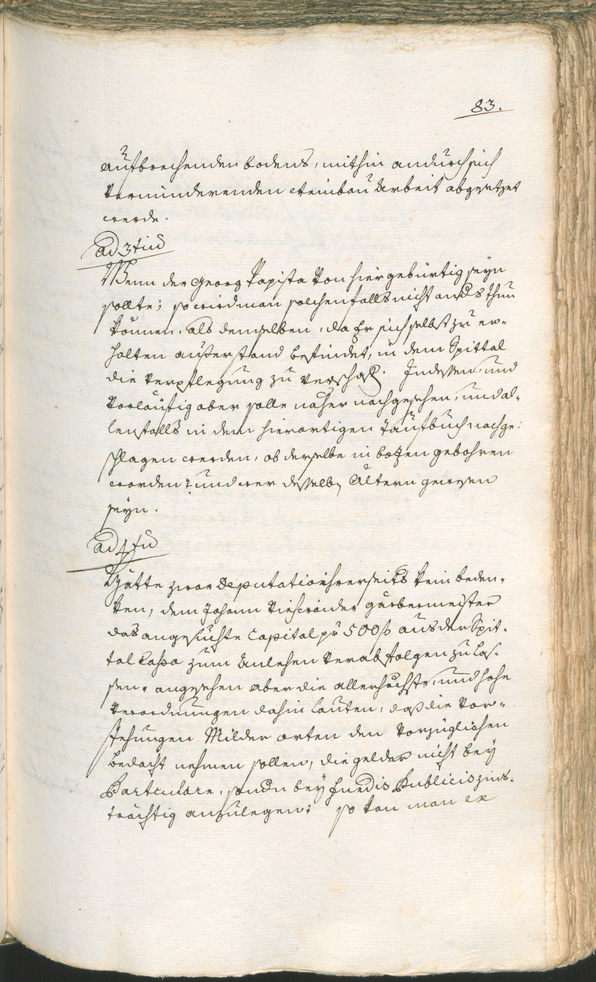 83.
aufbrechenden bodens, mithin andurch sich
verminderenden Steinbau Arbeit abgesetzet
werde.
ad 3tiu
Wenn der Georg Papista von hier gebürtig seyn
sollte; so wird man solchenfalls nicht anders thun
können, als demselben, da Er sich selbst zu er-
halten ausserstand befindet, in dem Spittal
die Verpflegung zu verschaf. Indessen, und
vorläufig aber solle näher nachgesehen, und al-
lenfalls in dem hierortigen Taufbuch nachge-
schlagen werden, ob derselbe in bozen gebohren
worden? und wer desselben Ältern gewesen
seyn.
ad 4tu
Hätte zwar Deputation ihrerseits kein beden-
ken, dem Johann Gärbermeister
das angesuchte Capital pr 500 f aus der Spit-
tal Cassa zum Anlehen verabfolgen zu las-
sen, angesehen aber die allerhöchste, und hohe
Verordnungen dahin lauten, dass die Vor-
stehungen Milder orten den vorzüglichen
bedacht nehmen sollen, die gelder nicht bey
Particulare, sondn bey Fundis Publicis zins-
trächtig anzulegen; so kan man ex